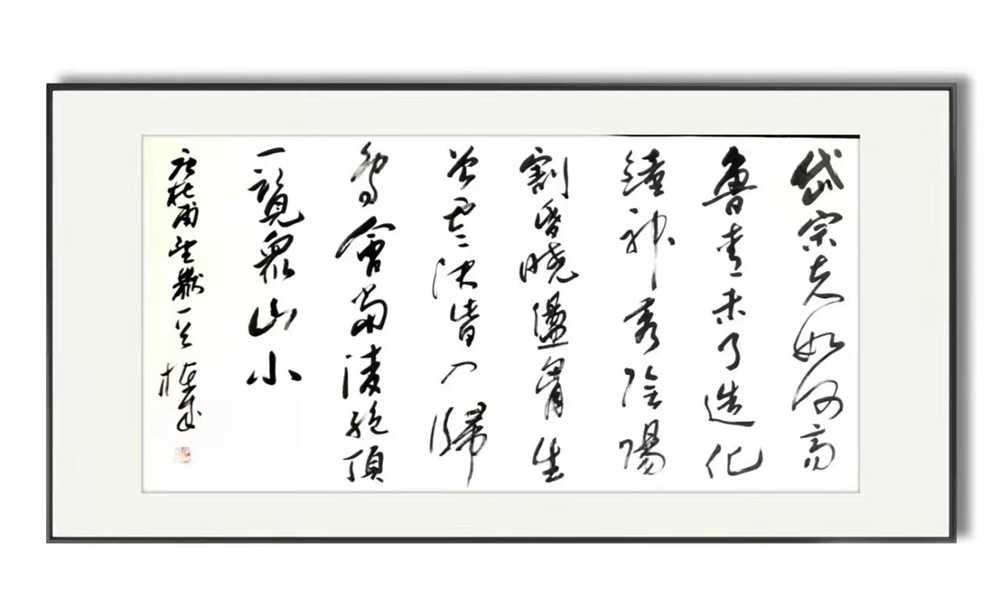 岱宗夫如何齊
魯青未了造化
鍾神秀陰陽
割昏曉盪胸生
曾雲決眥入歸
鳥會當淩絕頂
一覽眾山小
唐杜甫望嶽一首